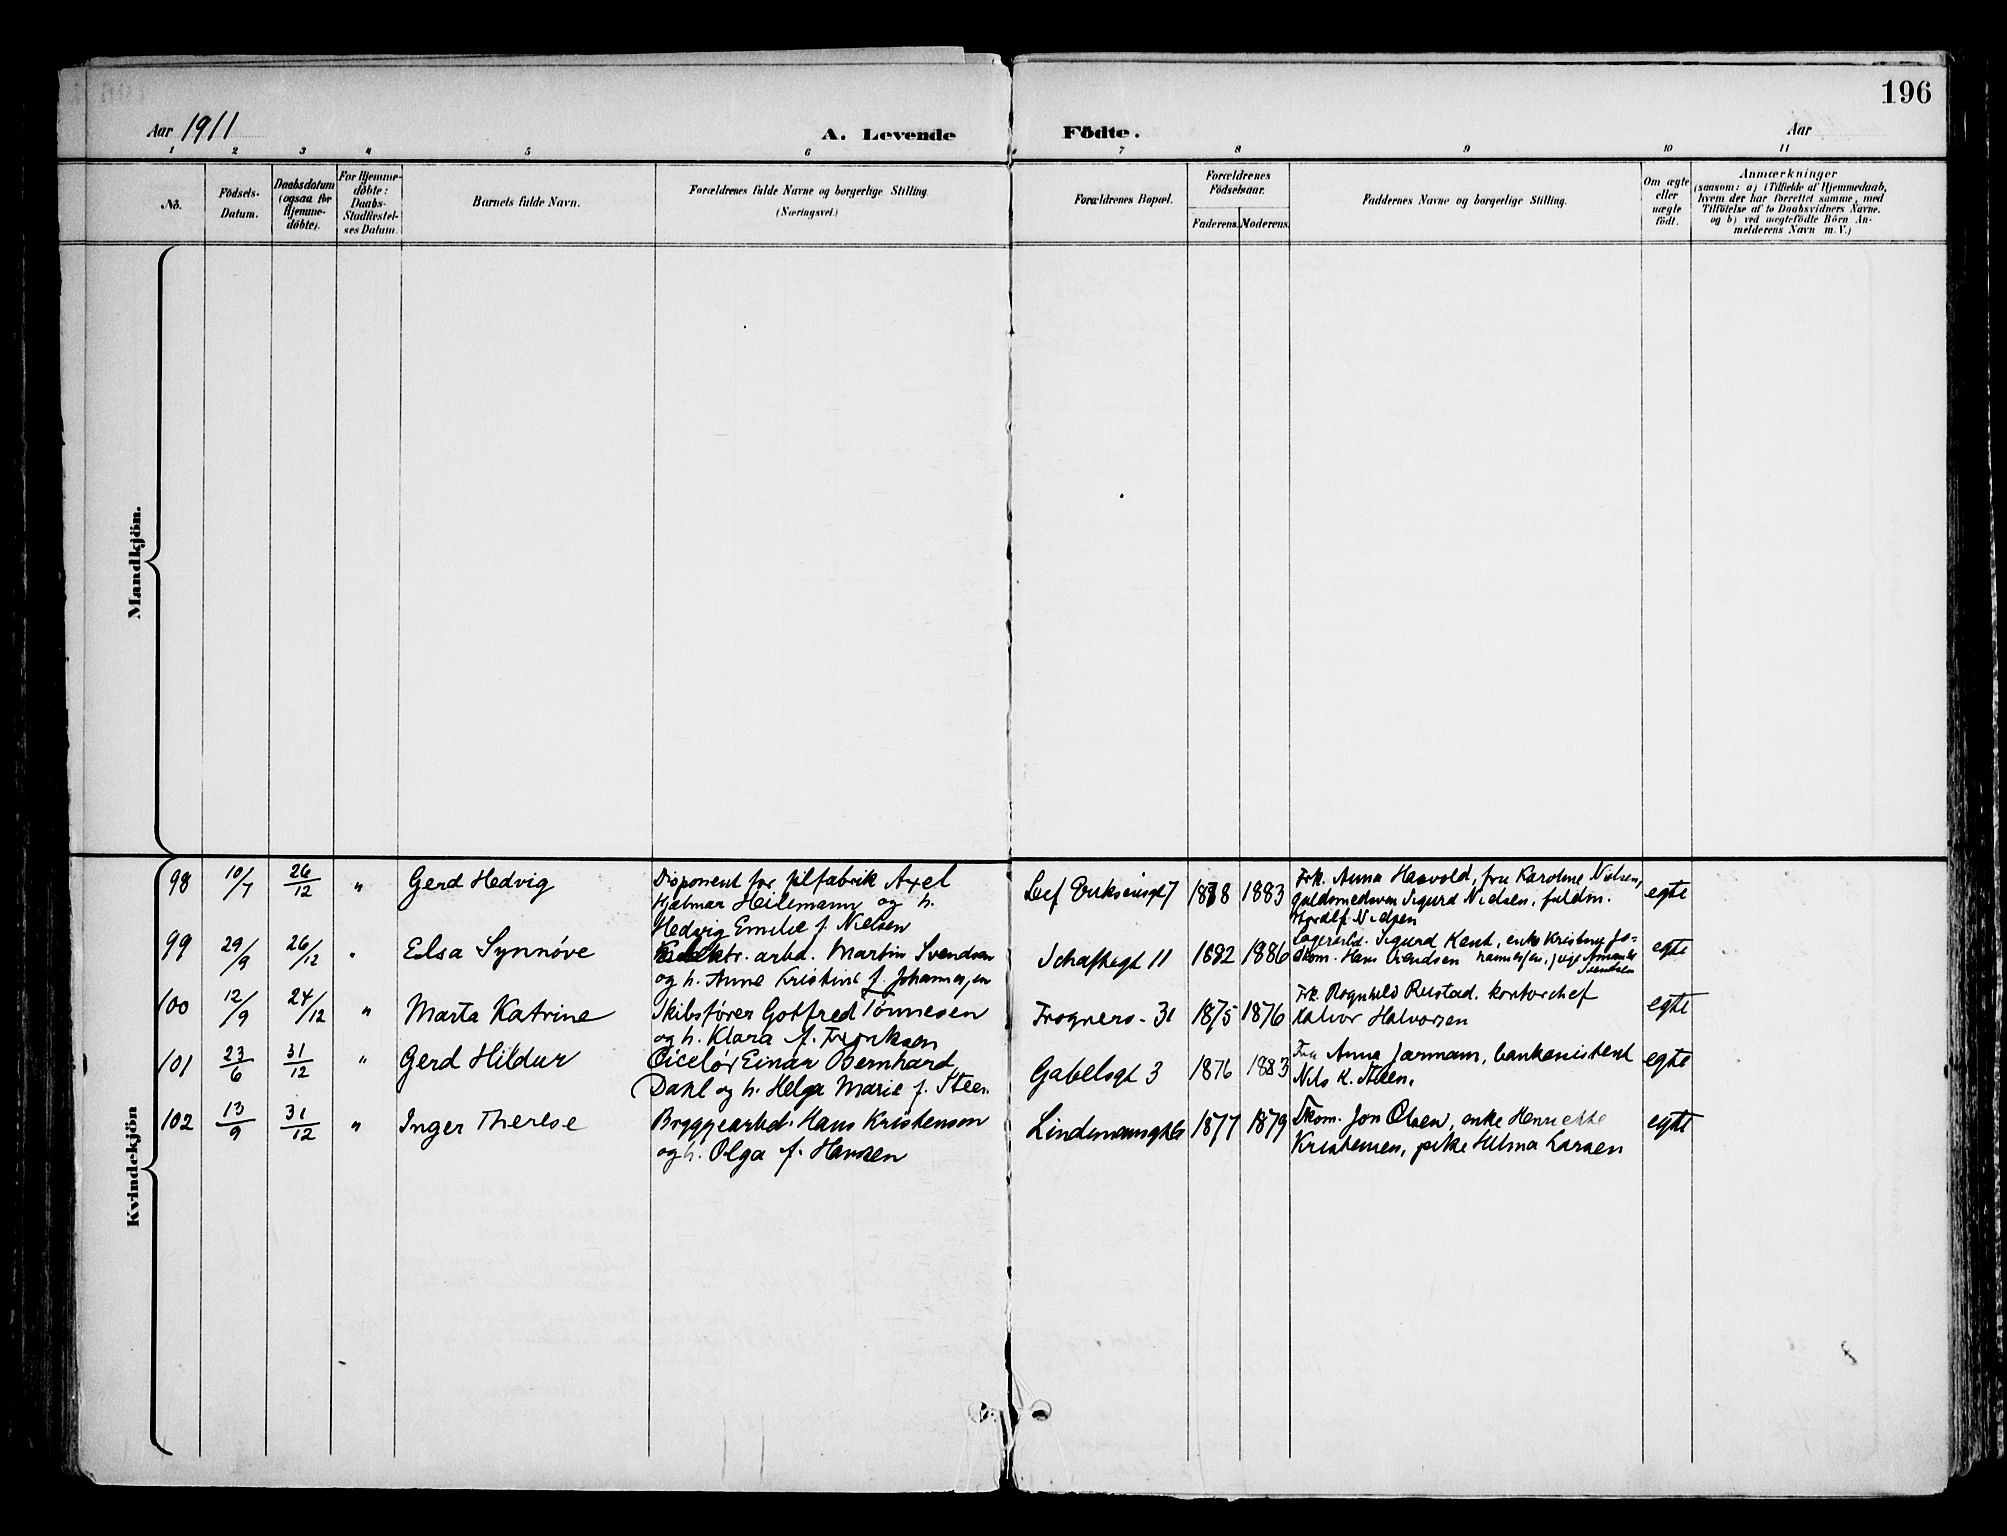 196
Aar 1911
A. Levende
Födte.
Aar
1 2 3 4 5 6 7 8 9 10 11
No.
Födsels-
Datum.
Daabsdatum
(ogsaa for
Hjemme-
döbte).
For Hjemme-
döbte:
Daabs-
Stadfæstel-
ses Datum.
Barnets fulde Navn.
Forældrenes fulde Navne og borgerlige Stilling.
(Næringsvei.)
Forældrenes Bopæl.
Forældrenes
Födselsaar.
Faderens. Moderens.
Faddernes Navne og borgerlige Stilling.
Om ægte
eller
uægte
födt.
Anmærkninger
(saasom: a) i Tilfælde af Hjemmedaab,
hvem der har forrettet samme, med
Tilföielse af to Daabsvidners Navne.
og b) ved uegtefödte Börn An-
melderens Navn m.V.)
Mandkjön.
Kvindekjön
98 10/7 26/12 " Gerd Hedvig
Disponent for filfabrik Axel
Hjalmar Heilemann og h.
Hedvig Emilie f. Nielsen
1878 1883
Frk. Anna Hasvold, fru Karoline Nielsen,
guldsmedsven Sigurd Nielsen, fuldm.
Nielsen
egte
99 29/9 26/12 " Elsa Synnøve
arbd. Martin Svendsen
og h. Anne Kristine f. Johannesen
Schaftegt 11 1882 1886
Lagerarbd. Sigurd Kent, enke Kristine Jo-
hannessen, pige Amanda
Skom. Hans Svendsen
Svendsen
egte
100 12/9 24/12 " Marta Katrine
Skibsfører Gotfred Tönnesen
og h. Klara f. Eriksen
Frogners- 31 1875 1876
Frk. Ragnhild Rustad. kontorchef
Halvor Halvorsen
egte
101 23/6 31/12 " Gerd Hildur
Ciselør Einar Bernhard
Dahl og h. Helga Marie f. Steen
Gabelsgt 3 1876 1883
Fru Anna Jarmann, bankassistent
Nils K. Steen.
egte
102 13/9 31/12 " Inger Therese
Bryggearbd. Hans Kristensen
og h. Olga f. Hansen
1877 1879
Skom. Jon Olsen, enke Henriette
Kristensen, pike Hilma Larsen
egte